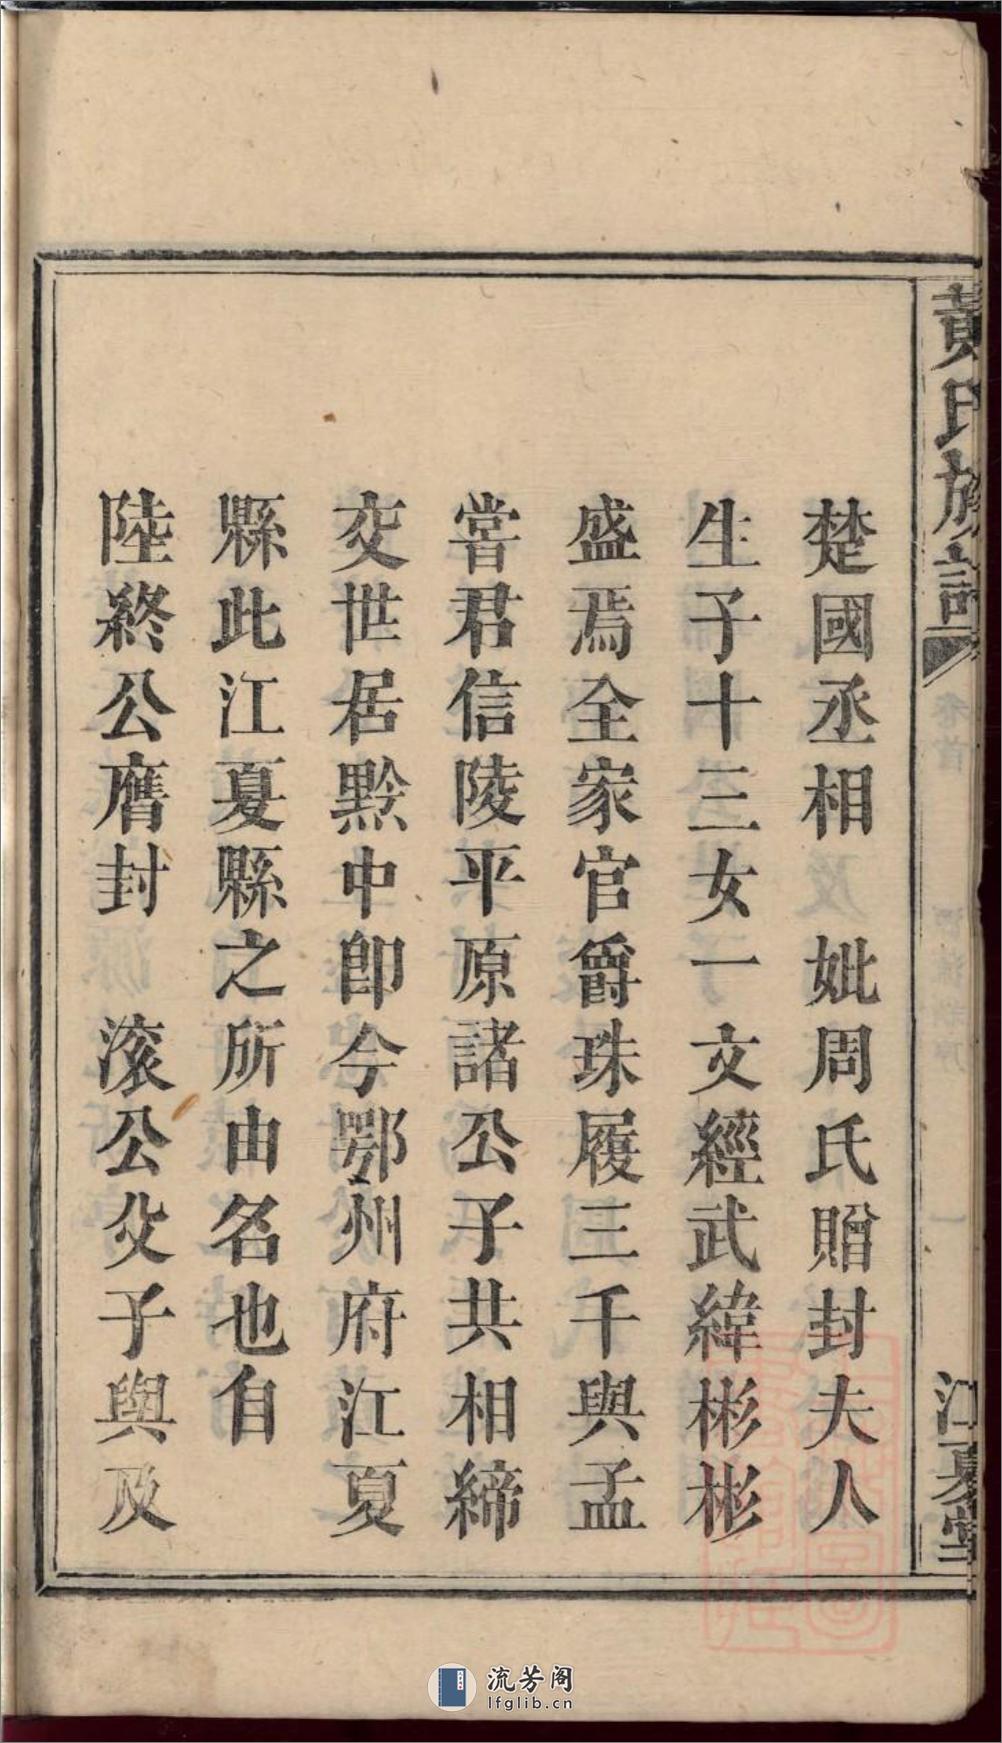 黃氏族譜
江夏堂
楚國丞相　妣周氏贈封夫人
生子十三女一文經武緯彬彬
盛焉全家官爵珠履三千與孟
嘗君信陵平原諸公子共相締
交世居黔中卽今鄂州府江夏
縣此江夏縣之所由名也自
陸終公膺封　滚公父子與及
流芳阁
lfglib.cn